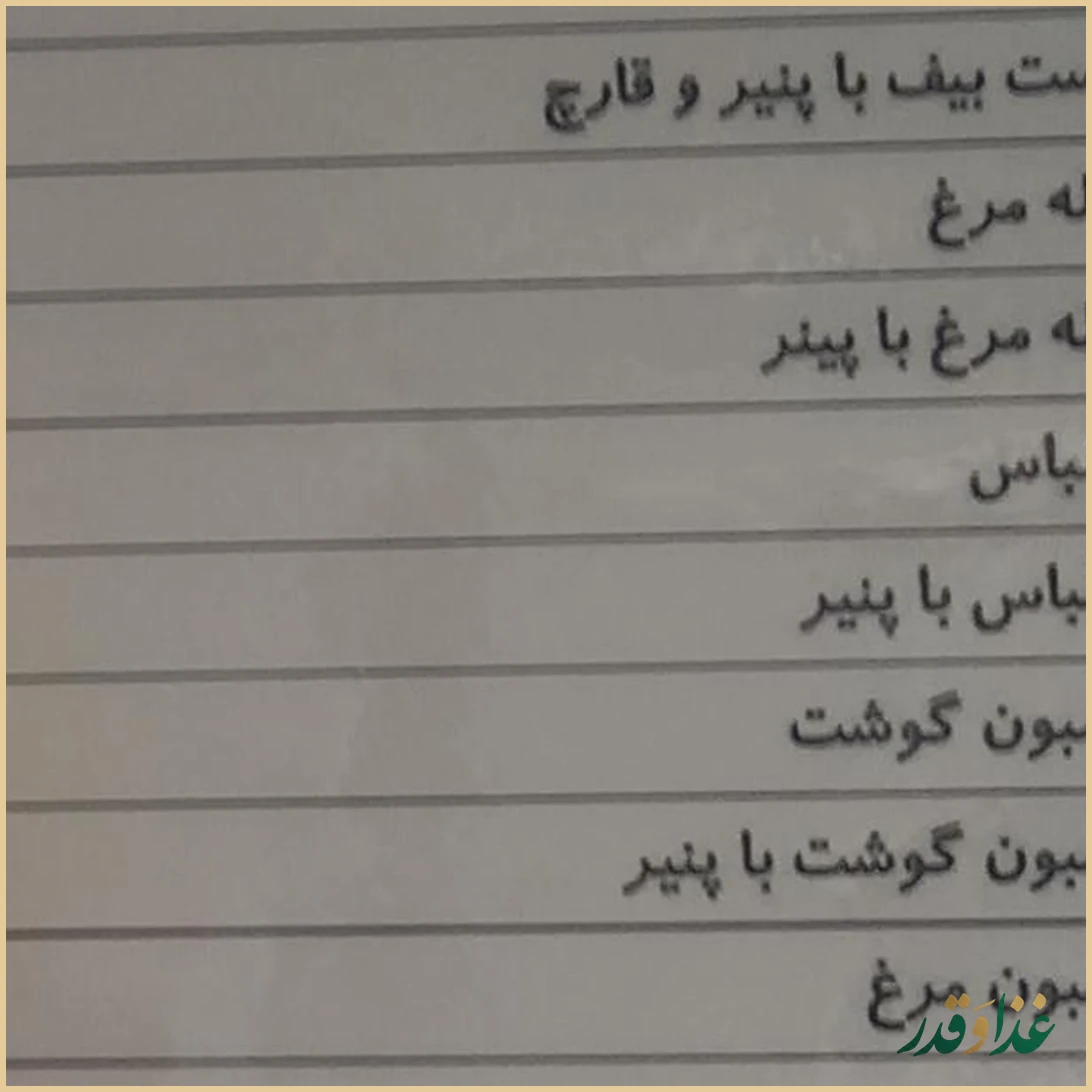 ست بیف با پنیر و قارچ
له مرغ
له مرغ با پینر
باس
باس با پنیر
بون گوشت
بون گوشت با پنیر
بون مرغ
غذا وَ قدر